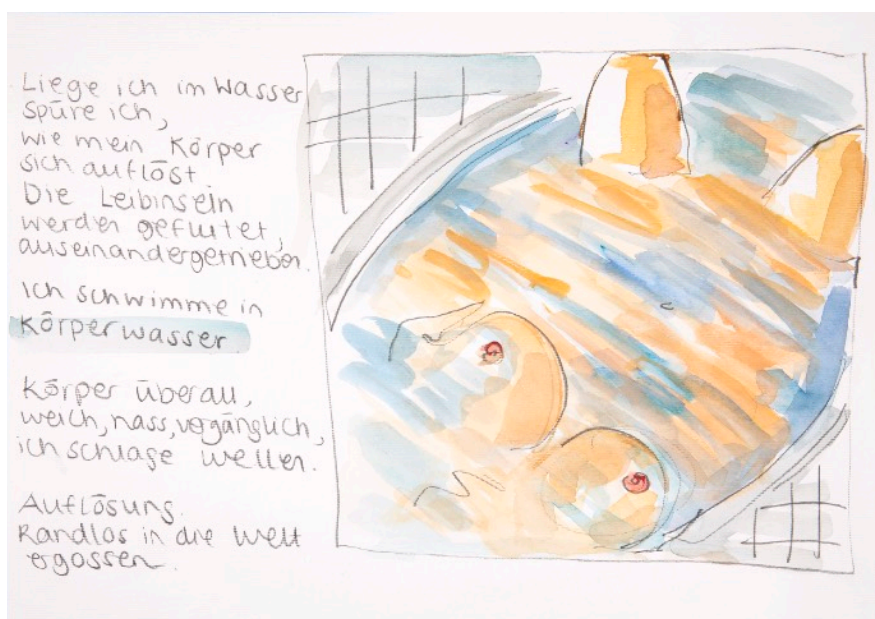 Liege ich im Wasser
spüre ich,
wie mein Körper
sich auflöst
Die Leibinseln
werden geflutet,
auseinandergetrieben.
Ich schwimme in
Körperwasser.
Körper überall,
weich, nass, vergänglich,
ich schlage wellen.
Auflösung.
Randlos in die Welt
ergossen.